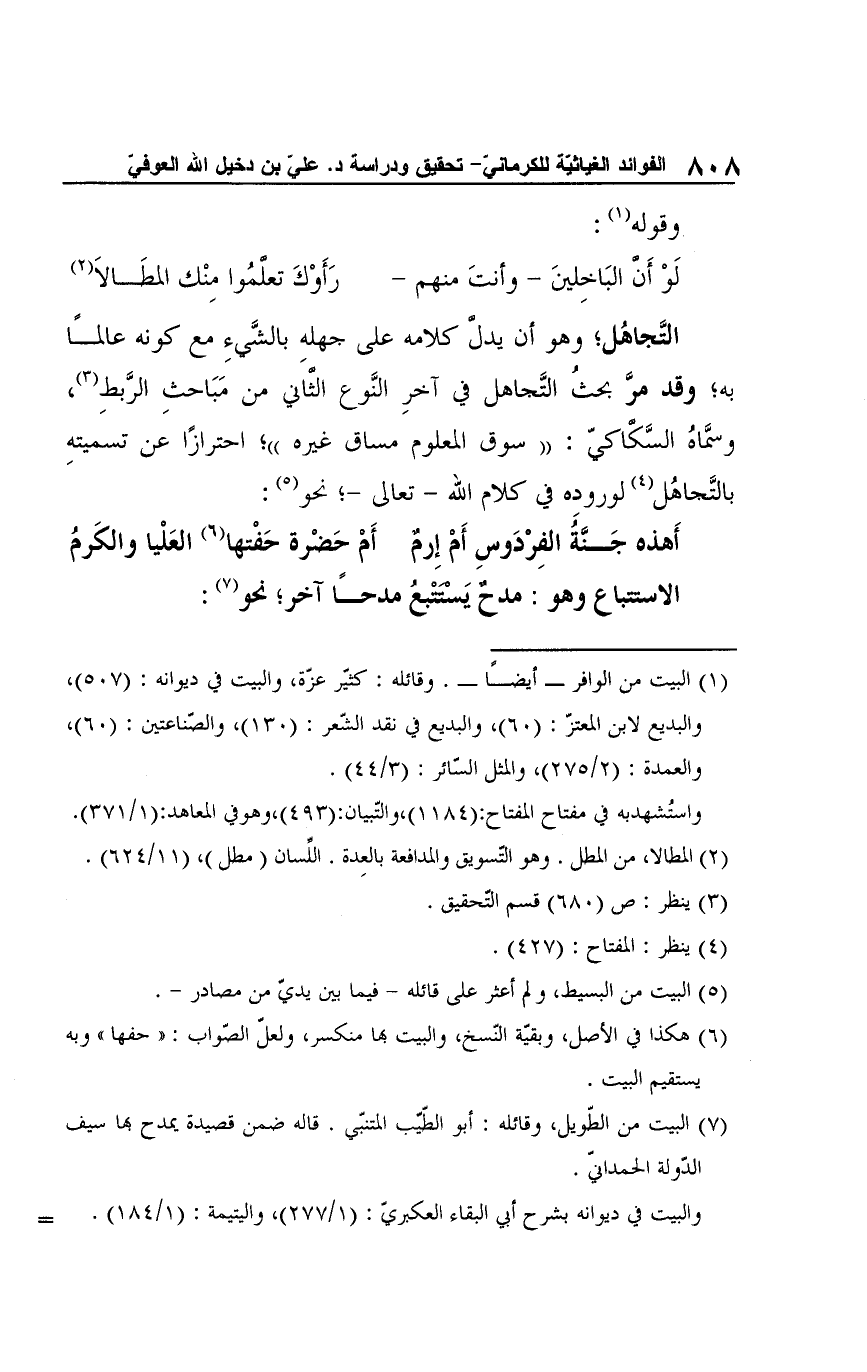 ٨٠٨ الفوائد الغياثيّة للكرمانيّ- تحقيق ودراسة د. عليّ بن دخيل الله العوفيّ
وقوله(١) :
لَوْ أَنَّ البَاخِلينَ – وأنتَ منهم – رَأَوْكَ تعلَّمُوا مِنْك المطَـــالاَ(٢)
التَّجاهُل؛ وهو أن يدلّ كلامه على جهلهِ بالشَّيءِ مع كونه عالمـــًا
به؛ وقد مرَّ بحثُ التَّجاهل في آخرِ النَّوع الثَّاني من مَبَاحثِ الرَّبط(٣)،
وسمَّاهُ السَّكَّاكيّ : (( سوق المعلوم مساق غيره ))؛ احترازًا عن تسميتهِ
بالتَّجاهُل(٤) لوروده في كلام الله – تعالى –؛ نحو(٥) :
أَهذه جَـــنَّةُ الفِرْدَوسِ أَمْ إِرمٌ أَمْ حَضْرة حَفْتها(٦) العَلْيا والكَرمُ
الاستتباع وهو : مدحٌ يَسْتَتْبعُ مدحـــًا آخر؛ نحو(٧) :
(١) البيت من الوافر ــ أيضـــًا ــ . وقائله : كثيّر عزّة، والبيت في ديوانه : (٥٠٧)،
والبديع لابن المعتزّ : (٦٠)، والبديع في نقد الشّعر : (١٣٠)، والصّناعتين : (٦٠)،
والعمدة : (٢٧٥/٢)، والمثل السّائر : (٤٤/٣) .
واستُشهدبه في مفتاح المفتاح:(١١٨٤)،والتّبيان:(٤٩٣)،وهوفي المعاهد:(٣٧١/١).
(٢) المطالا، من المطل . وهو التّسويق والمدافعة بالعِدة . اللِّسان ( مطل )، (٦٢٤/١١) .
(٣) ينظر : ص (٦٨٠) قسم التّحقيق .
(٤) ينظر : المفتاح : (٤٢٧) .
(٥) البيت من البسيط، و لم أعثر على قائله – فيما بين يديّ من مصادر – .
(٦) هكذا في الأصل، وبقيّة النّسخ، والبيت بها منكسر، ولعلّ الصّواب : « حفها » وبه
يستقيم البيت .
(٧) البيت من الطّويل، وقائله : أبو الطّيّب المتنبّي . قاله ضمن قصيدة يمدح بها سيف
الدّولة الحمدانيّ .
والبيت في ديوانه بشرح أبي البقاء العكبريّ : (٢٧٧/١)، واليتيمة : (١٨٤/١) . =